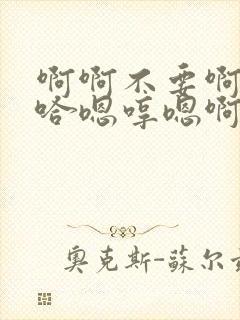 啊啊不要啊
哈嗯哼嗯啊
奥克斯-蘇尔